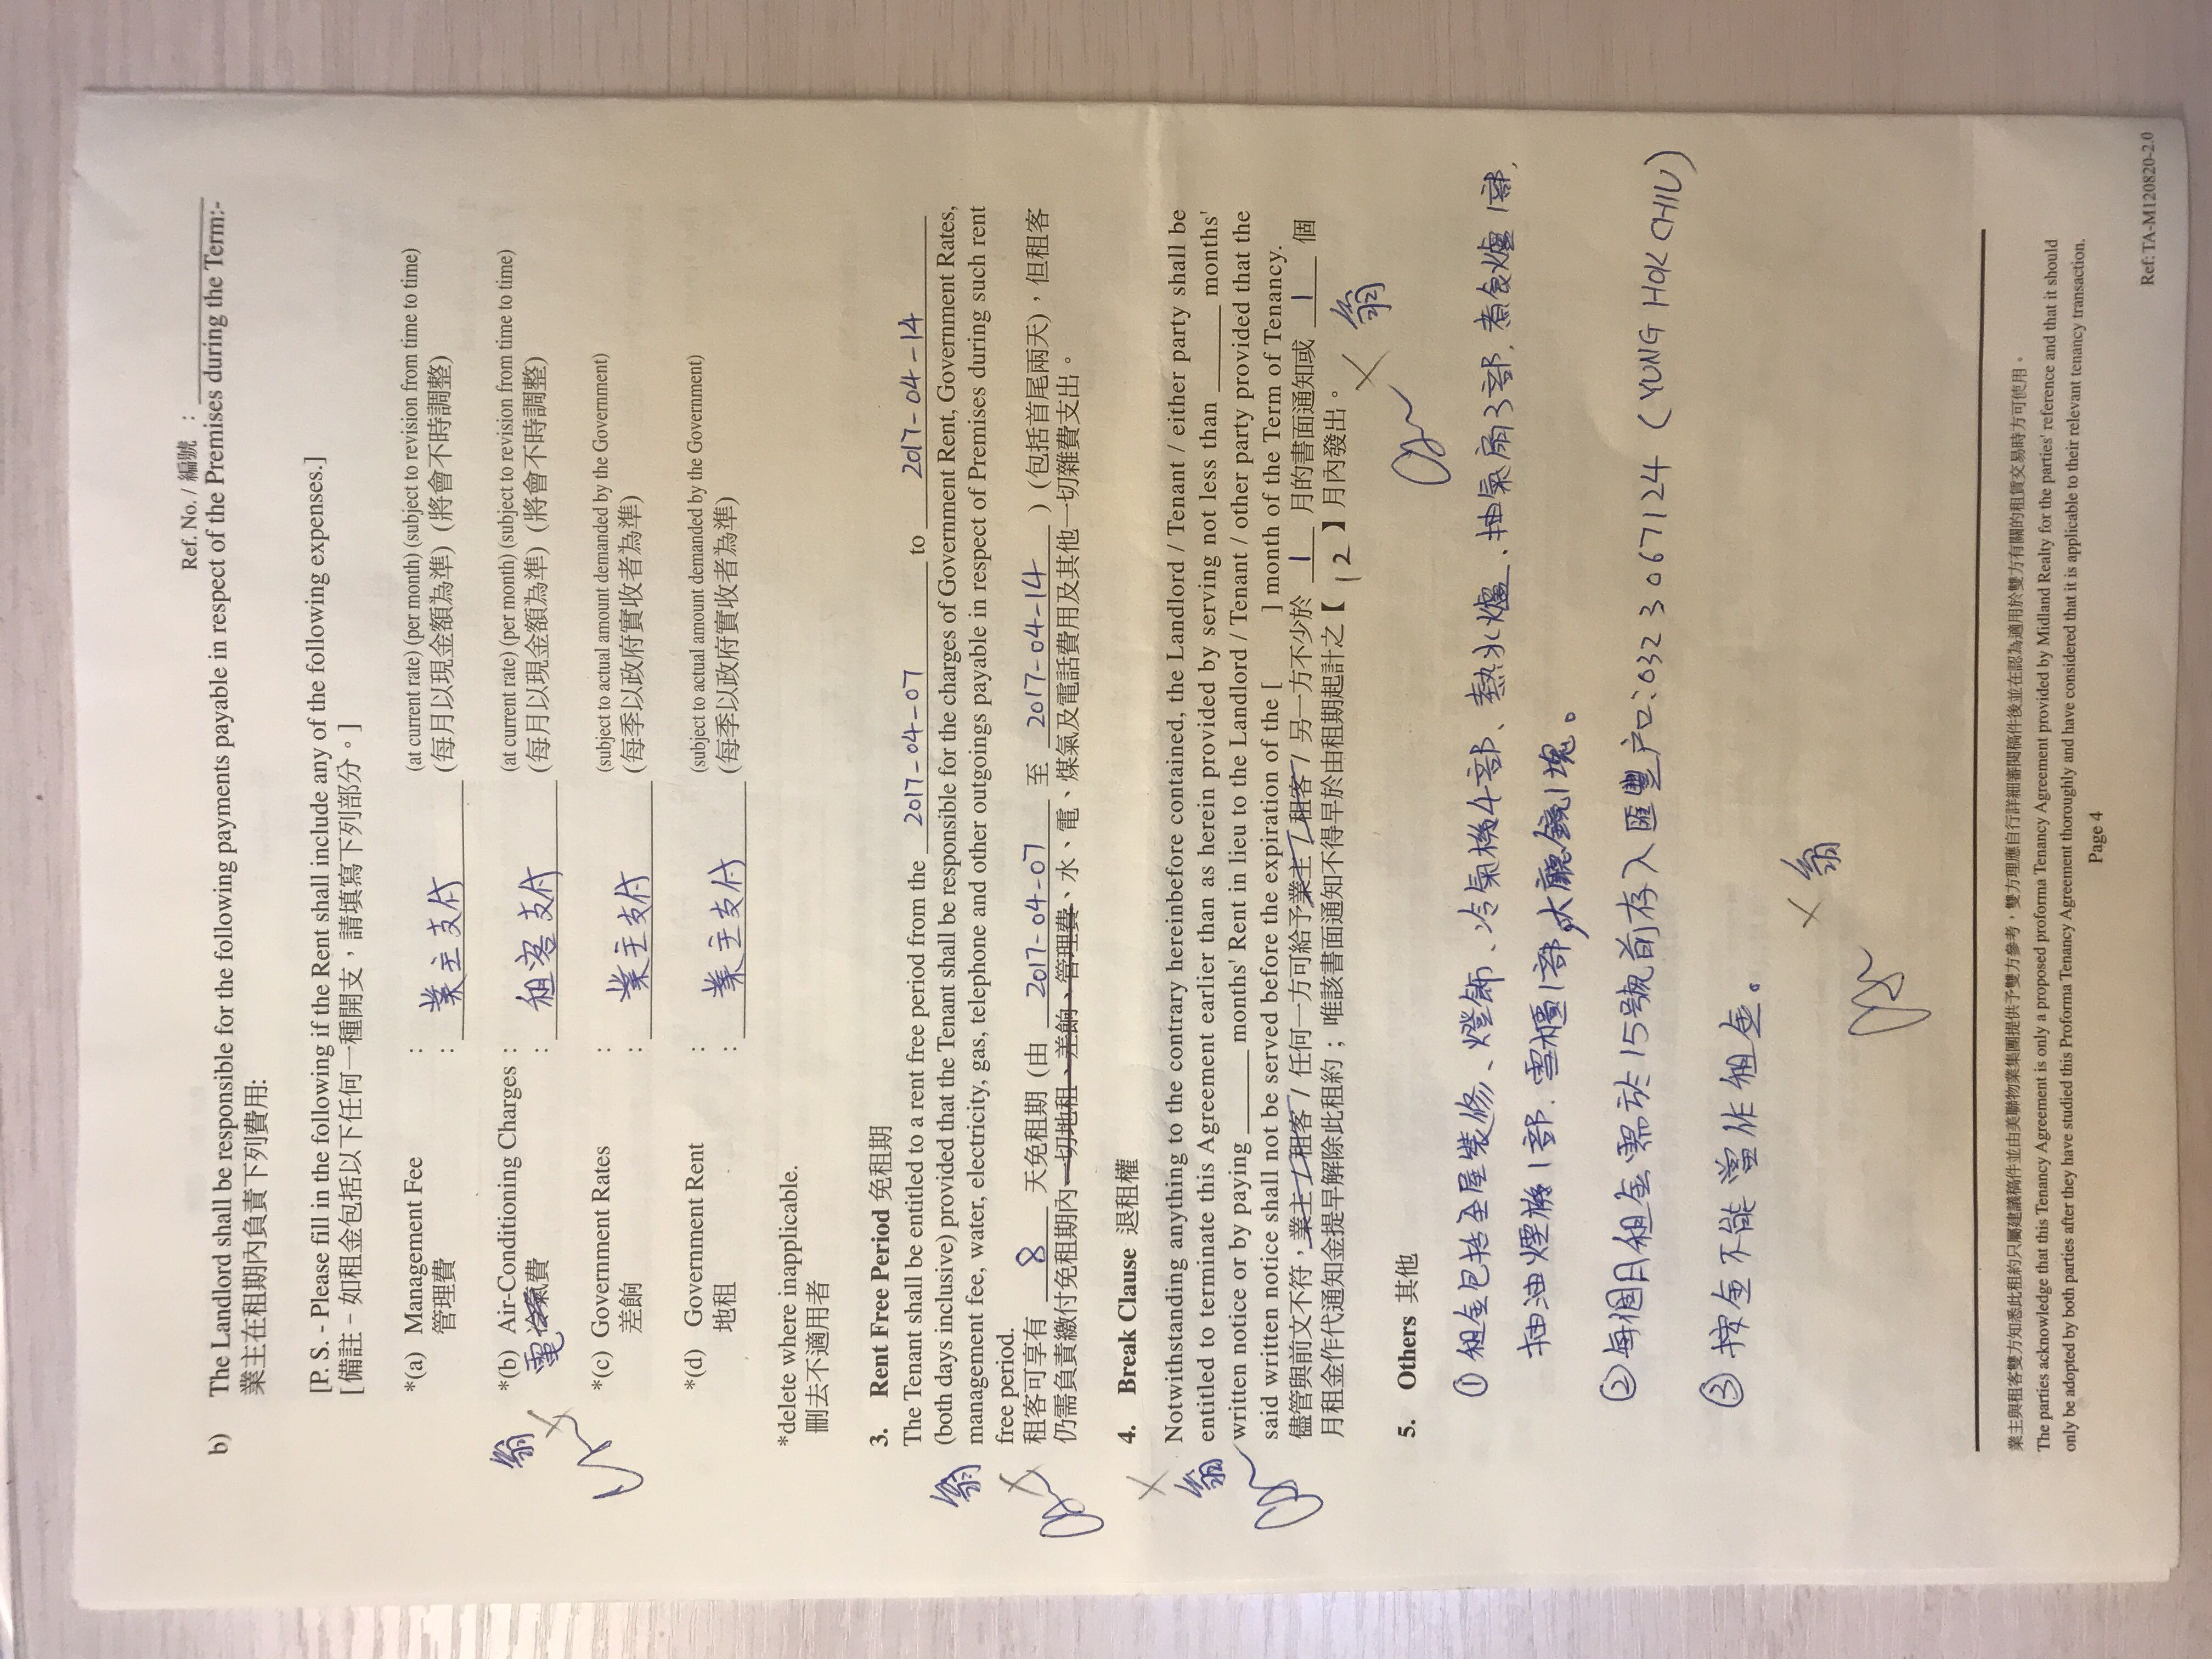 Ref. No. / 編號 :
b) The Landlord shall be responsible for the following payments payable in respect of the Premises during the Term:-
業主在租期內負責下列費用:
[P. S. - Please fill in the following if the Rent shall include any of the following expenses.]
[備註 – 如租金包括以下任何一種開支，請填寫下列部分。]
*(a) Management Fee : (at current rate) (per month) (subject to revision from time to time)
管理費 : 業主支付 (每月以現金額為準) (將會不時調整)
*(b) Air-Conditioning Charges : (at current rate) (per month) (subject to revision from time to time)
電氣費 : 租客支付 (每月以現金額為準) (將會不時調整)
*(c) Government Rates : (subject to actual amount demanded by the Government)
差餉 : 業主支付 (每季以政府實收者為準)
*(d) Government Rent : (subject to actual amount demanded by the Government)
地租 : 業主支付 (每季以政府實收者為準)
*delete where inapplicable.
刪去不適用者
翁
3. Rent Free Period 免租期
The Tenant shall be entitled to a rent free period from the 2017-04-07 to 2017-04-14
(both days inclusive) provided that the Tenant shall be responsible for the charges of Government Rent, Government Rates,
management fee, water, electricity, gas, telephone and other outgoings payable in respect of Premises during such rent
free period.
租客可享有 8 天免租期 (由 2017-04-07 至 2017-04-14 ) (包括首尾兩天)，但租客
仍需負責繳付免租期內一切地租、差餉、管理費、水、電、煤氣及電話費用及其他一切雜費支出。
翁
4. Break Clause 退租權
Notwithstanding anything to the contrary hereinbefore contained, the Landlord / Tenant / either party shall be
entitled to terminate this Agreement earlier than as herein provided by serving not less than ____ months'
written notice or by paying ____ months' Rent in lieu to the Landlord / Tenant / other party provided that the
said written notice shall not be served before the expiration of the [ ] month of the Term of Tenancy.
儘管與前文不符，業主 / 租客 / 任何一方可給予業主 / 租客 / 另一方不少於 1 月的書面通知或 1 個
月租金作代通知金提早解除此租約；唯該書面通知不得早於由租期起計之【 12 】月內發出。
翁
翁
5. Others 其他
① 租金包括全屋裝修、燈飾、冷氣機4部、熱水爐、抽氣扇3部、煮食爐1部、
抽油煙機1部、雪櫃1部,大廳鏡1塊。
② 每個月租金需於15號前存入匯豐户口:032 3 067124 (YUNG HOK CHIU)
③ 按金不能當作租金。
翁
業主與租客雙方知悉此租約只屬建議稿件並由美聯物業集團提供予雙方參考，雙方理應自行詳細審閱稿件後並在認為適用於雙方有關的租賃交易時方可使用。
The parties acknowledge that this Tenancy Agreement is only a proposed proforma Tenancy Agreement provided by Midland Realty for the parties' reference and that it should
only be adopted by both parties after they have studied this Proforma Tenancy Agreement thoroughly and have considered that it is applicable to their relevant tenancy transaction.
Page 4
Ref: TA-M120820-2.0